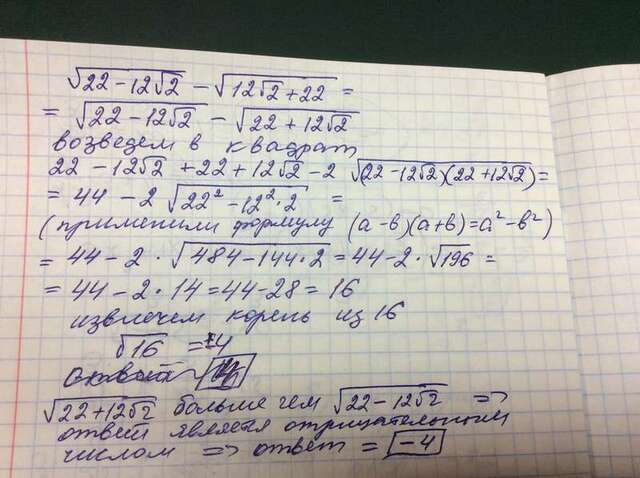 √22-12√2 - √12√2+22 =
= √22-12√2 - √22+12√2
возведем в квадрат
22 - 12√2 + 22 + 12√2 - 2 √(22-12√2)(22+12√2) =
= 44 - 2 √22²-12²·2 =
(применили формулу (а-в)(а+в)=а²-в²)
= 44 - 2 · √484-144·2 = 44-2·√196 =
= 44 - 2·14 = 44-28 = 16
извлечем корень из 16
√16 = ±4
ответ
√22+12√2 больше чем √22-12√2 =>
ответ является отрицательным
числом => ответ = -4